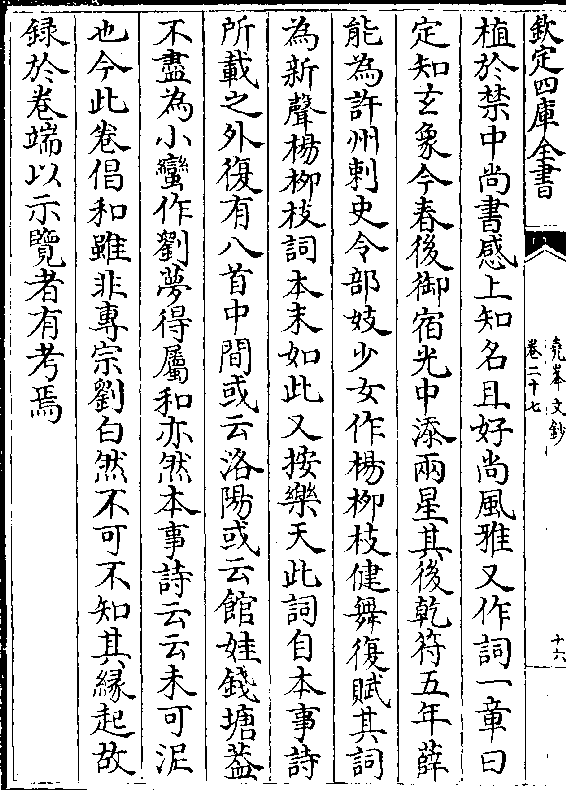 欽定四庫全書
堯峯文鈔
卷二十七
十六
植於禁中尚書感上知名且好尚風雅又作詞一章曰
定知玄象今春後御宿光中添兩星其後乾符五年薛
能為許州刺史令部妓少女作楊柳枝健舞復賦其詞
為新聲楊柳枝詞本末如此又按樂天此詞自本事詩
所載之外復有八首中間或云洛陽或云館娃錢塘蓋
不盡為小蠻作劉夢得屬和亦然本事詩云云未可泥
也今此卷倡和雖非專宗劉白然不可不知其緣起故
録於卷端以示覽者有考焉